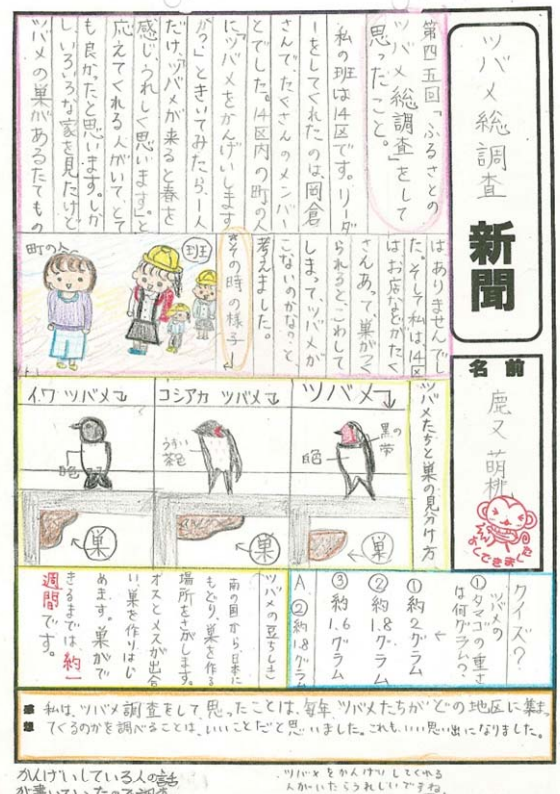 ツバメ総調査
新聞
名前
鹿又 萌桃
第四五回「ふるさとの
ツバメ総調査」をして
思ったこと。
私の班は14区です。リーダ
ーをしてくれたのは、岡倉
さんで、たくさんのメンバー
とでした。14区内の町の人
に「ツバメをかんげいします
か?」ときいてみたら、一人
だけ、「ツバメが来ると春を
感じ、うれしく思います。」と
応えてくれる人がいて、とて
も良かったと思います。しか
し、いろいろな家を見たけど
ツバメの巣があるたてもの
はありませんでし
た。そして私は、14区
はお店などがたく
さんあって、巣がつく
られると、こわして
しまって、ツバメが
こないのかな?と、
考えました。
☆その時の様子
班
町の人
ツバメたちと巣の見分け方
ツバメ
黒の帯
白色
巣
コシアカツバメ
うすい茶色
巣
イワツバメ
白色
巣
クイズ?
ツバメの
①タマゴの重さ
は何グラム?
①約2グラム
②約1.8グラム
③約1.6グラム
A ②約1.8グラム
ツバメの豆ちしき
南の国から、日本に
もどり、巣を作る
場所をさがします。
オスとメスが出合
い、巣を作りはじ
めます。巣がで
きるまでは、約一
週間です。
感想
私は、ツバメ調査をして、思ったことは、毎年、ツバメたちがどの地区に集まっ
てくるのかを調べることは、いいことだと思いました。これも、いい思い出になりました。
かんげいしている人の話
ツバメをかんげいしてくれる
人がいたらうれしいですね。